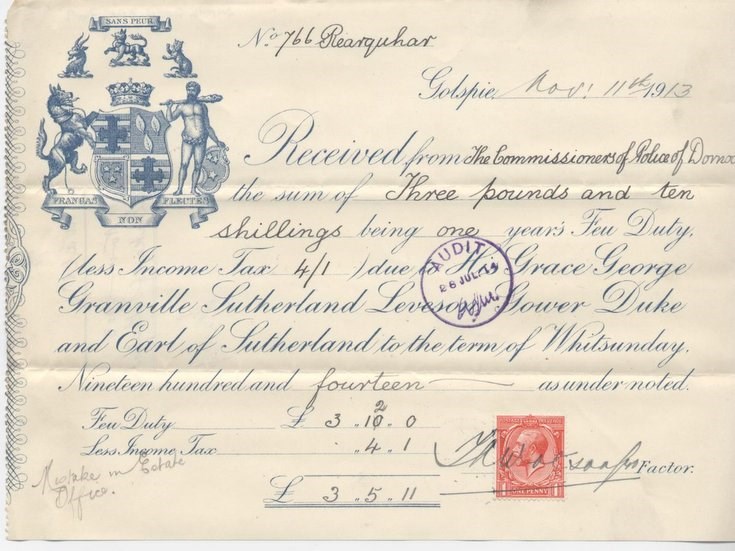 SANS PEUR
FRANGAS NON FLECTES
No. 766 Rearquhar
Golspie, Nov. 11th 1913
Received from The Commissioners of Police of Dorno
the sum of Three pounds and ten
shillings being one year's Feu Duty,
(less Income Tax 4/1) due to His Grace George
Granville Sutherland Leveson Gower Duke
and Earl of Sutherland to the term of Whitsunday,
Nineteen hundred and fourteen as under noted.
AUDIT
28 JUL. 14
Feu Duty £ 3 . 10 . 0
2
Less Income Tax . 4 . 1
£ 3 . 5 . 11
Factor.
ONE PENNY
Mistake in Estate
Office.